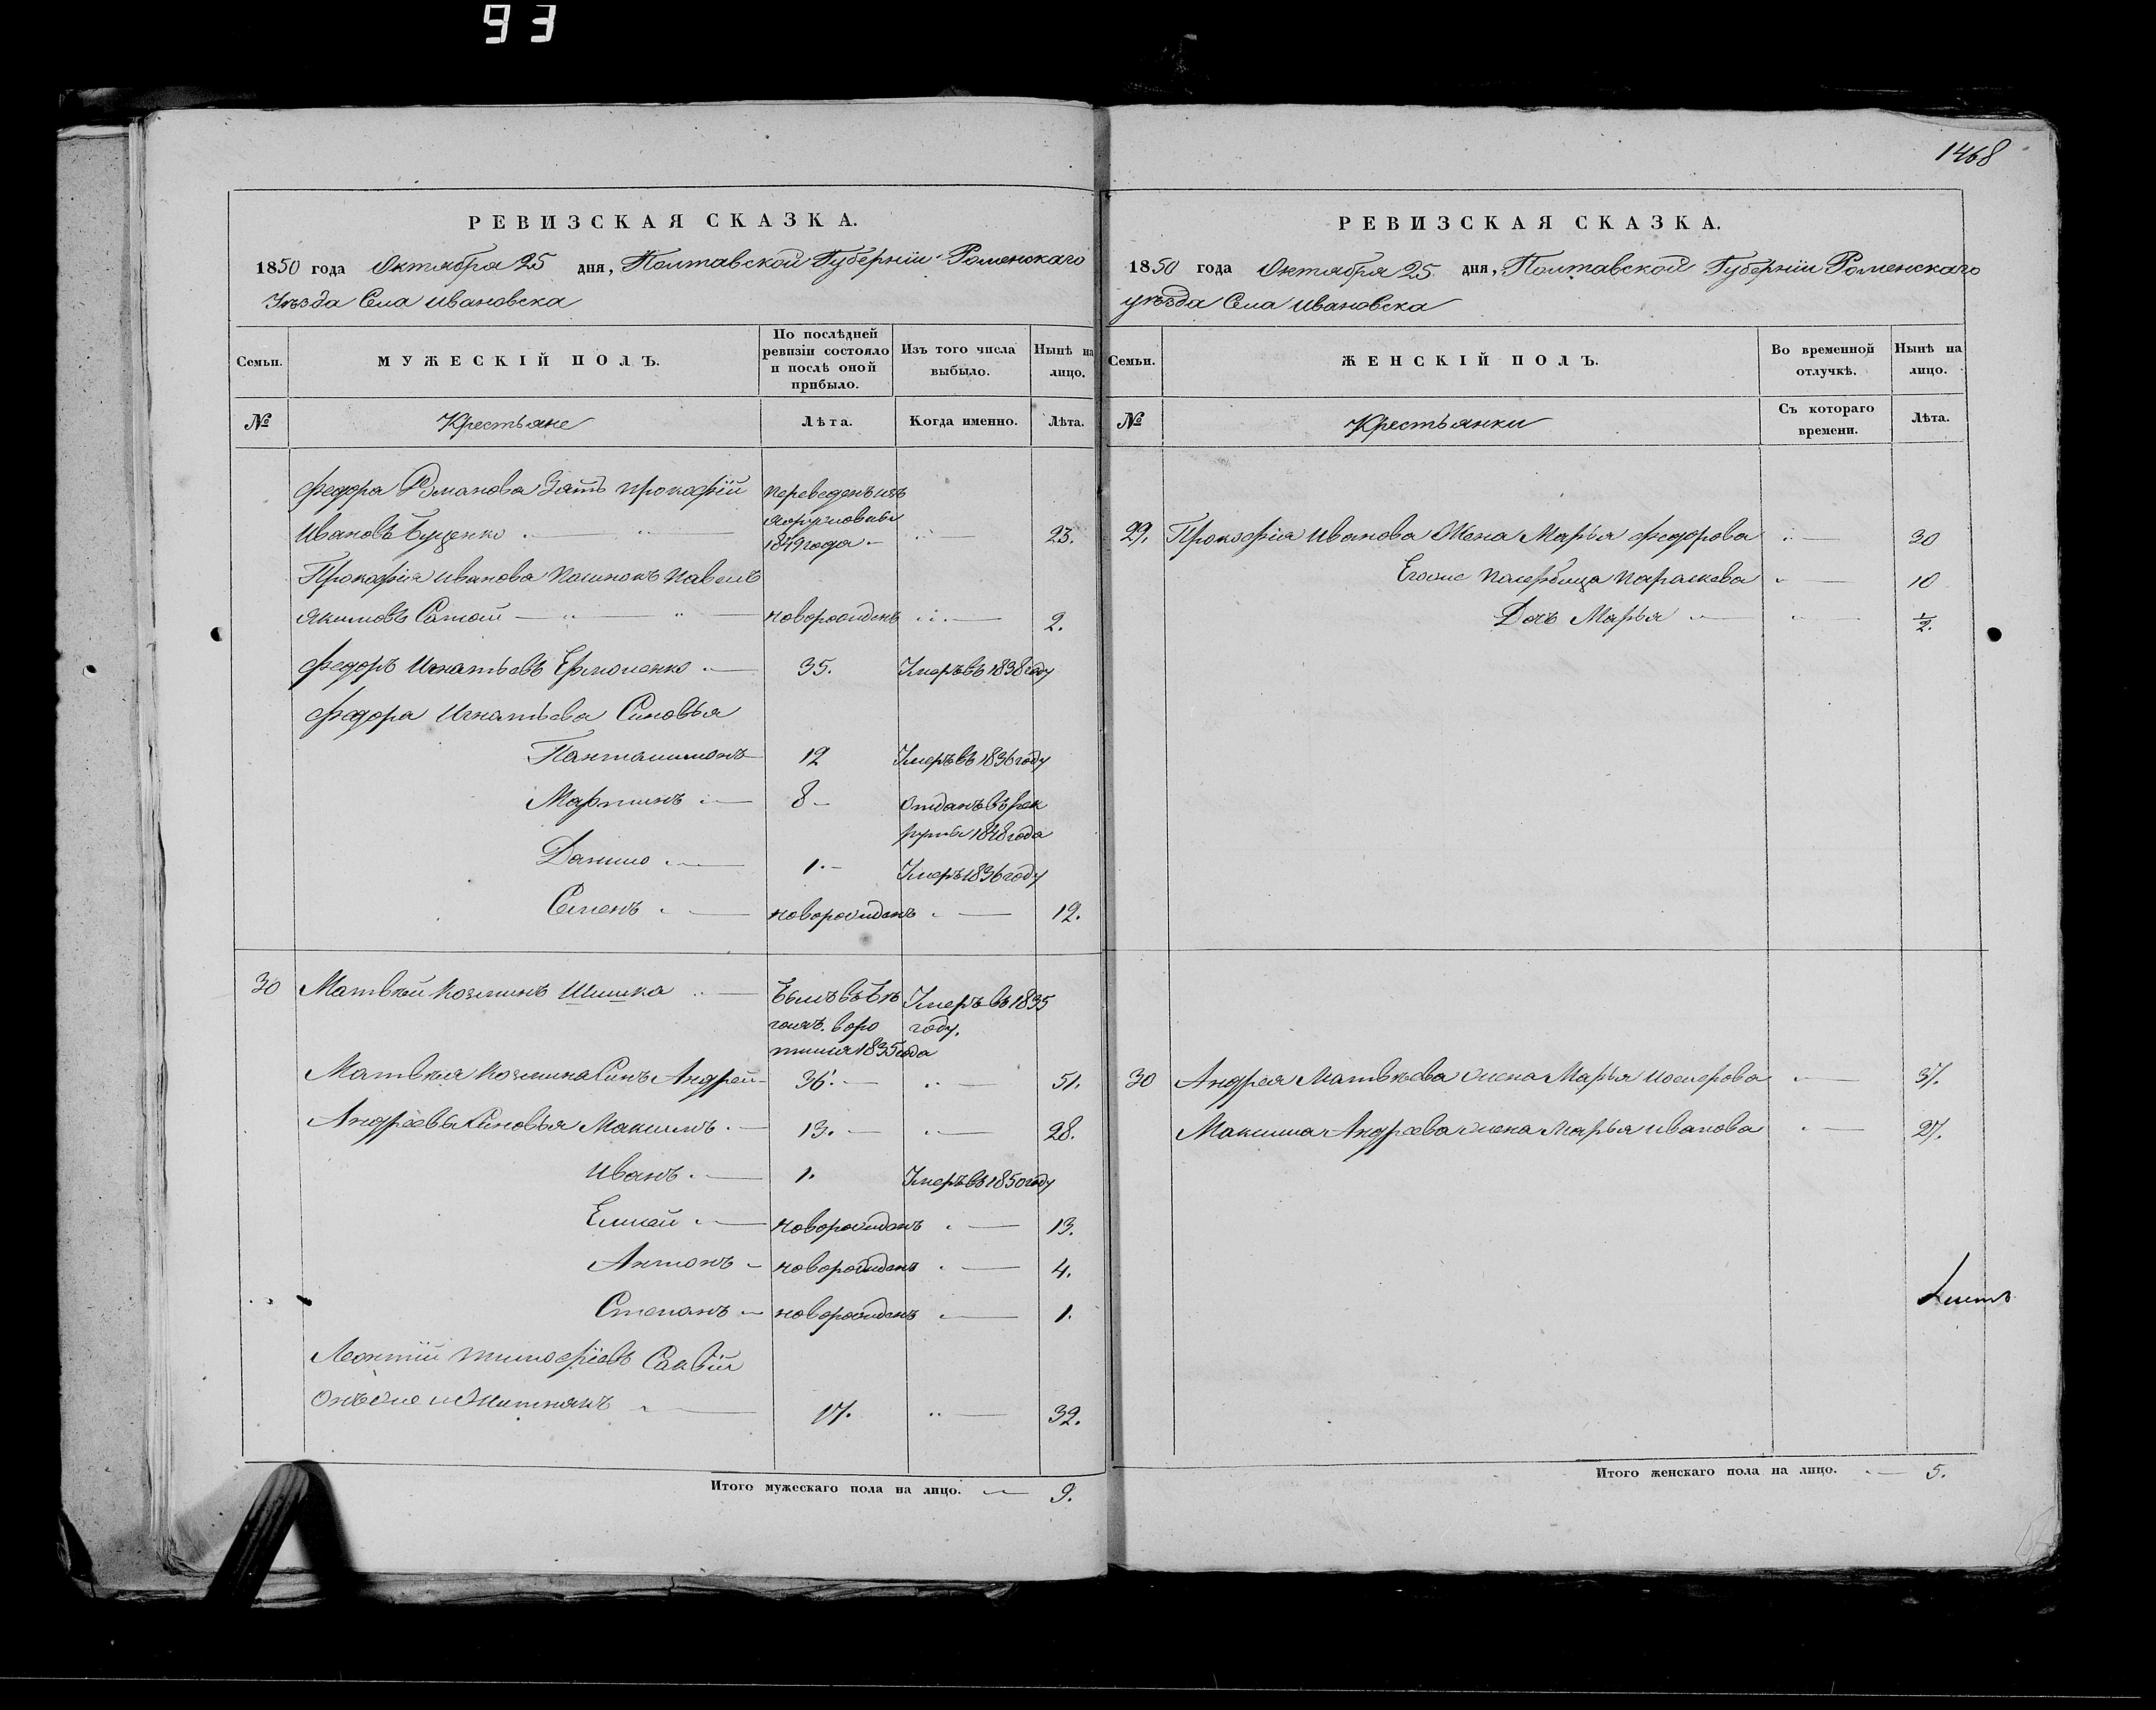 93
1468
РЕВИЗСКАЯ СКАЗКА.
1850 года Октября 25 дня, Полтавской Губерніи Роменскаго
Уѣзда Села Ивановска
Семьи. МУЖЕСКІЙ ПОЛЪ. По послѣдней ревизіи состояло и послѣ оной прибыло. Изъ того числа выбыло. Нынѣ на лицо.
№ Крестьяне Лѣта. Когда именно. Лѣта.
Федора Романова Зять Прокофій переведенъ изъ
Ивановъ 1849 года 23.
Прокофія Иванова Павелъ
Якимовъ новорожденъ 2.
Федоръ Игнатьевъ Ермоленко 35. Умеръ въ 1838 году
Федора Игнатьева Сыновья
Панталимонъ 12 Умеръ въ 1836 году
Мартинъ 8 Отданъ въ рек
руты 1848 года
Данило 1. Умеръ 1836 году
Семенъ новорожденъ 12.
30 Матвѣй Козминъ Шишка Былъ въ бѣ Умеръ въ 1835
гахъ. воро году.
тился 1835 года
Матвѣя Козмина Сынъ Андрей 36. 51.
Андреевы Сыновья Максимъ 13. 28.
Иванъ 1. Умеръ въ 1850 году
Елисей новорожденъ 13.
Антонъ новорожденъ 4.
Степанъ новорожденъ 1.
Леонтій Тимофіевъ
Онъ же и Житнякъ 17. 32.
Итого мужескаго пола на лицо. 9.
РЕВИЗСКАЯ СКАЗКА.
1850 года Октября 25 дня, Полтавской Губерніи Роменскаго
уѣзда Села Ивановска
Семьи. ЖЕНСКІЙ ПОЛЪ. Во временной отлучкѣ. Нынѣ на лицо.
№ Крестьянки Съ котораго времени. Лѣта.
29. Прокофія Иванова Жена Марья Федорова 30
Егоже Пасербица Параскева 10
Дочь Марья ½.
30 Андрея Матвѣева жена Марья 37.
Максима Андреева жена Марья Иванова 27.
Итого женскаго пола на лицо. 5.